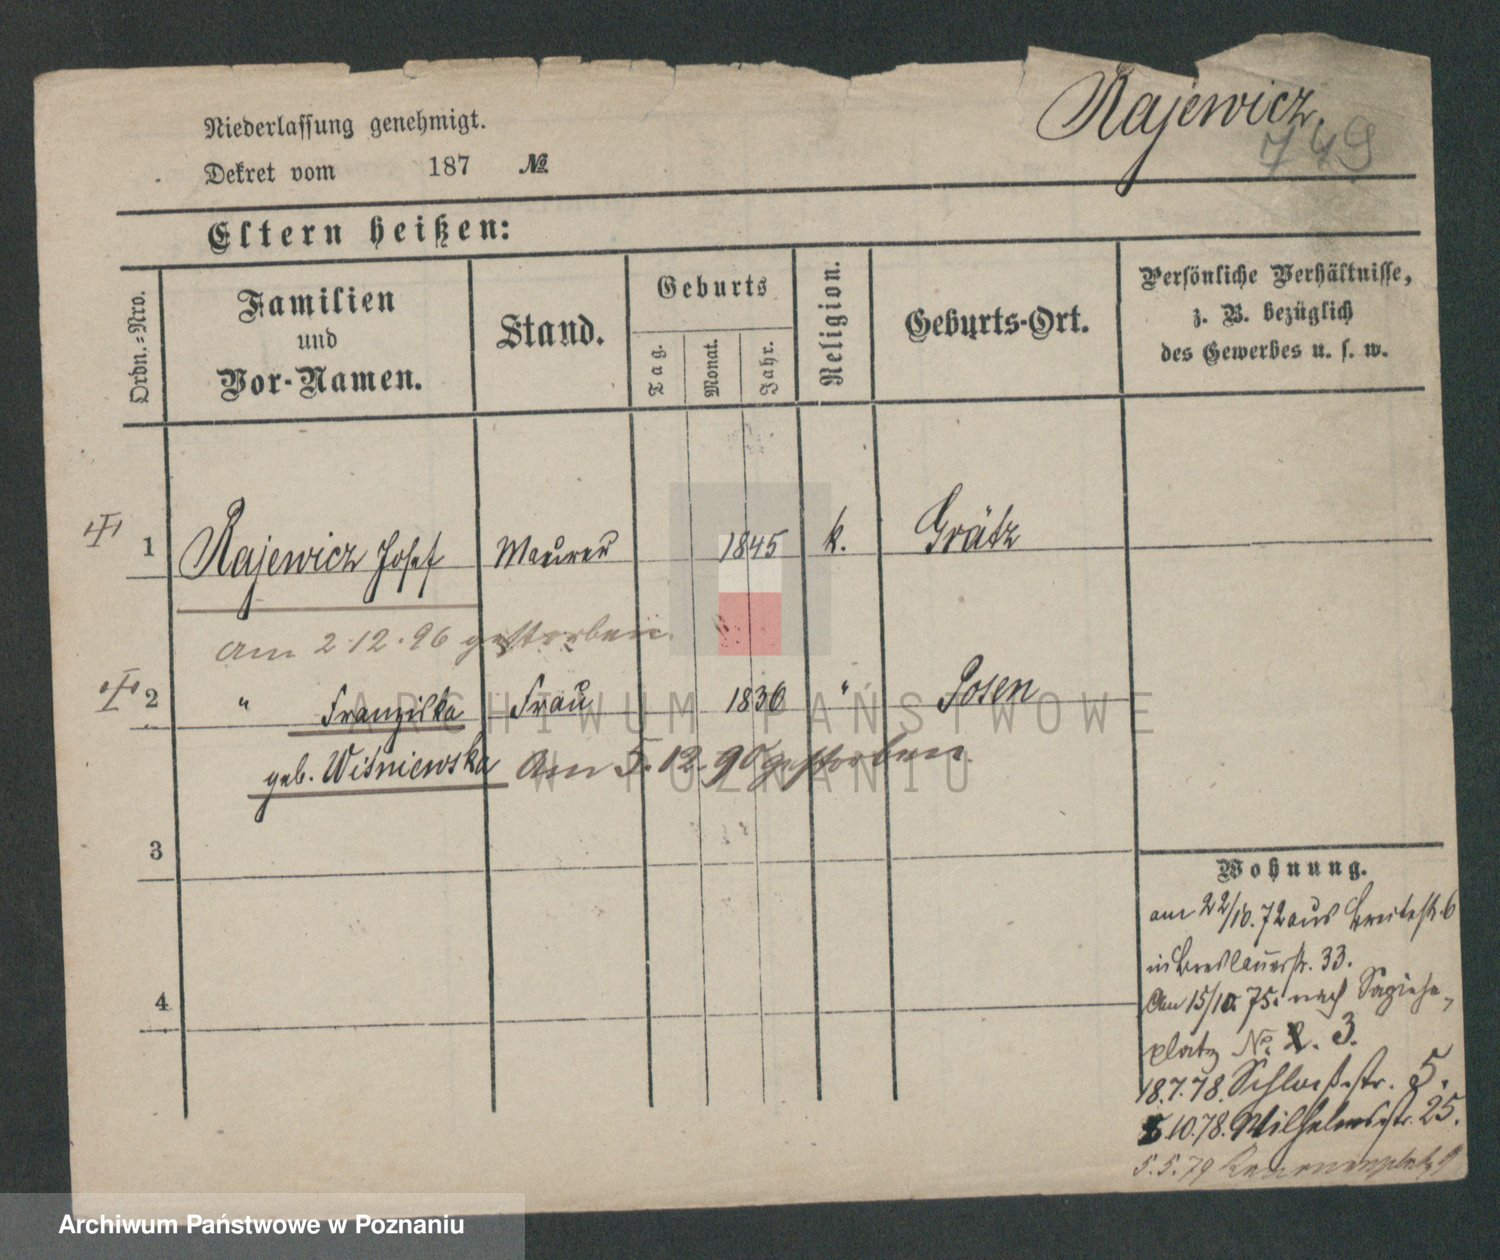 Rajewicz.
749
Niederlassung genehmigt.
Dekret vom 187 №
Eltern heißen:
Ordn.=Nro.
Familien
und
Vor-Namen.
Stand.
Geburts
Tag.
Monat.
Jahr.
Religion.
Geburts-Ort.
Persönliche Verhältnisse,
z. B. bezüglich
des Gewerbes u. s. w.
1 Rajewicz Josef Maurer 1845 k. Grätz
am 2.12.96 gestorben.
2 " Franziska Frau 1836 " Posen
geb. Wiśniewska am 5.12.90 gestorben.
3
4
Wohnung.
am 22/10.72 aus Breitestr. 6
in Breslauerstr. 33.
Am 15/10. 75. nach Sapieha-
platz No. 3.
18.7.78. Schloßstr. 5.
5.10.78. Wilhelmsstr. 25.
5.5.79 Kanonenplatz 9
ARCHIWUM PAŃSTWOWE
W POZNANIU
Archiwum Państwowe w Poznaniu